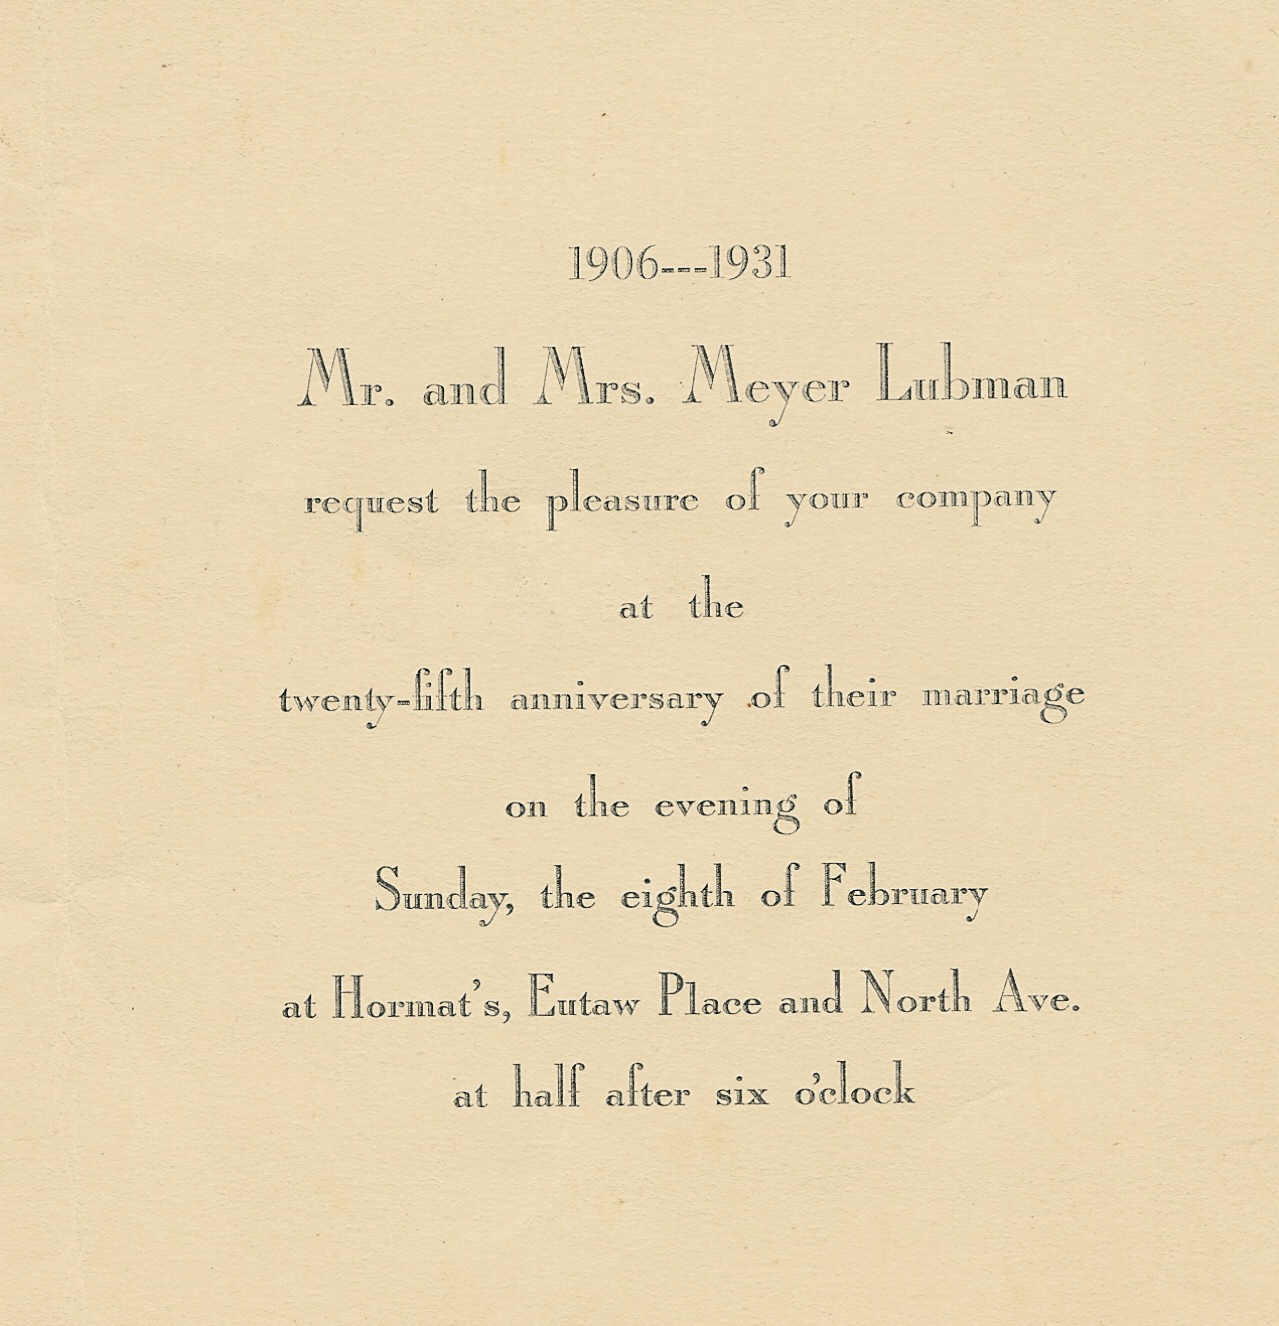 1906---1931
Mr. and Mrs. Meyer Lubman
request the pleasure of your company
at the
twenty-fifth anniversary of their marriage
on the evening of
Sunday, the eighth of February
at Hormat's, Eutaw Place and North Ave.
at half after six o'clock